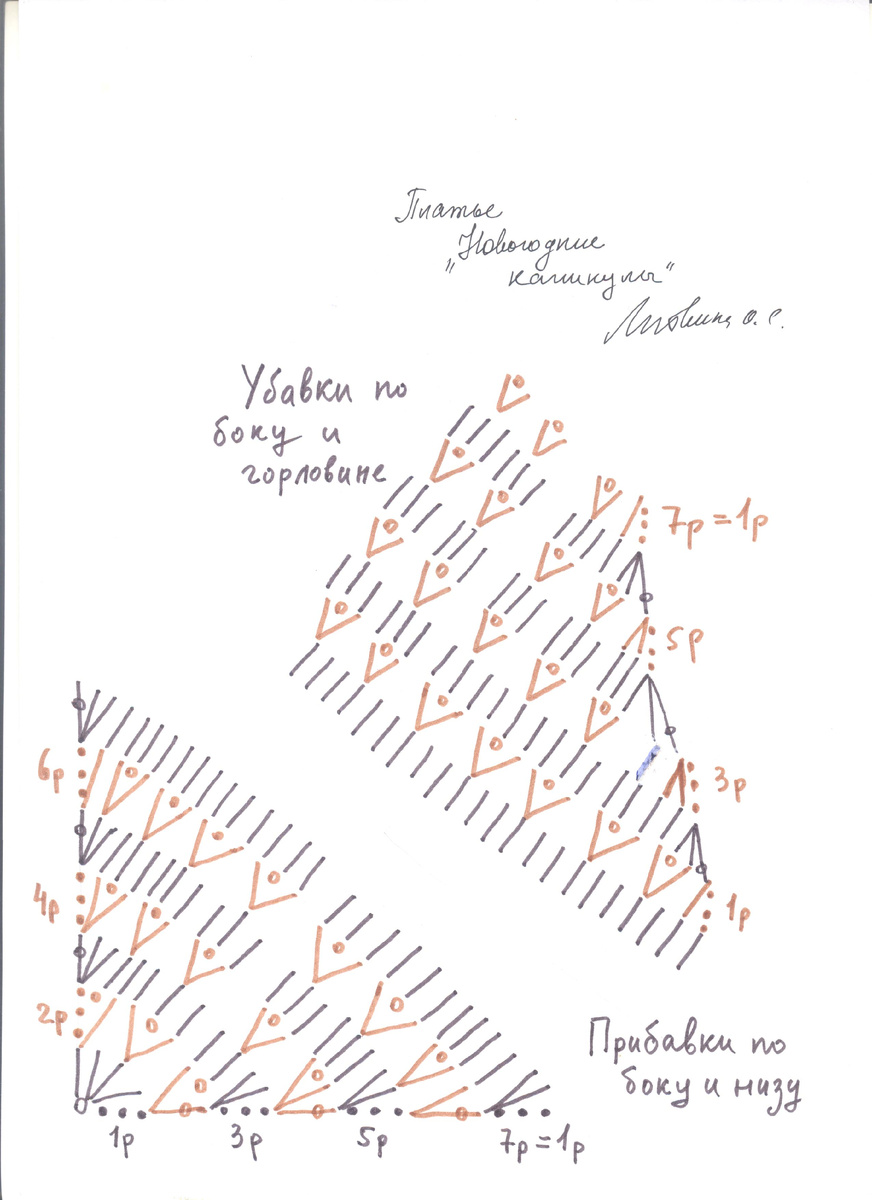 Платье
"Новогодние
каникулы"
О. С.
Убавки по
боку и
горловине
7р = 1р
5р
3р
1р
6р
4р
2р
Прибавки по
боку и низу
1р
3р
5р
7р = 1р